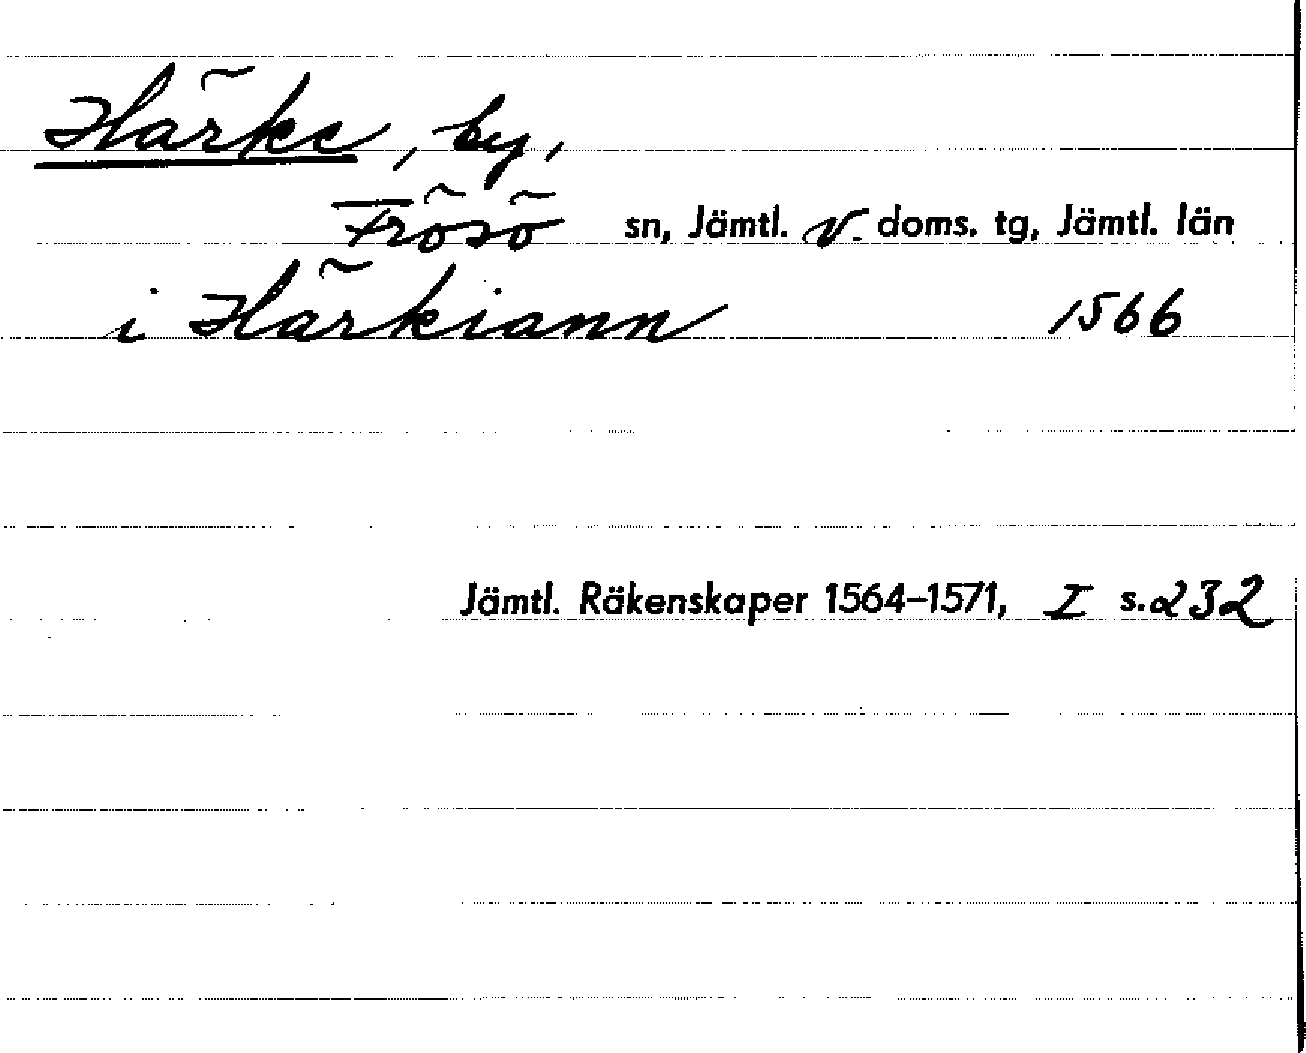 Härke, by,
Frösö sn, Jämtl. v. doms. tg, Jämtl. län
i Härkiann 1566
Jämtl. Räkenskaper 1564–1571, I s. 232